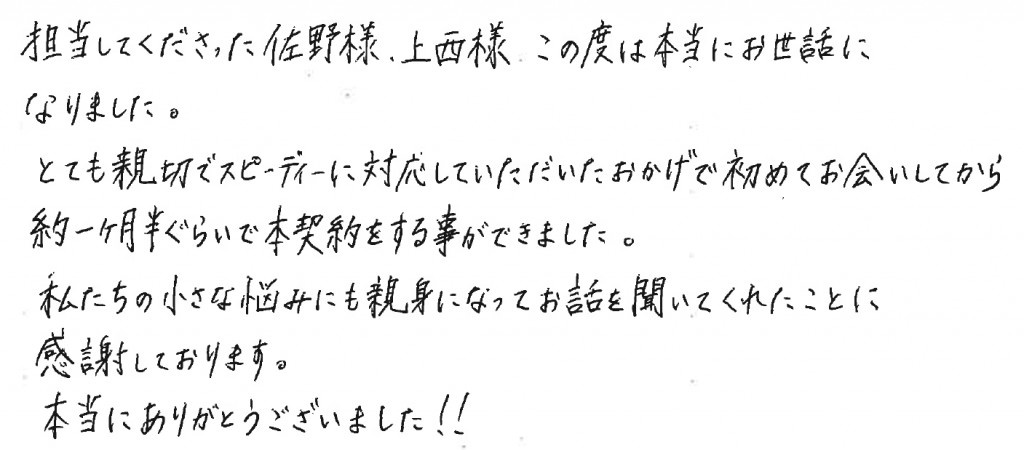 担当してくださった佐野様、上西様 この度は本当にお世話に
なりました。
とても親切でスピーディーに対応していただいたおかげで初めてお会いしてから
約一ヶ月半ぐらいで本契約をする事ができました。
私たちの小さな悩みにも親身になってお話を聞いてくれたことに
感謝しております。
本当にありがとうございました!!